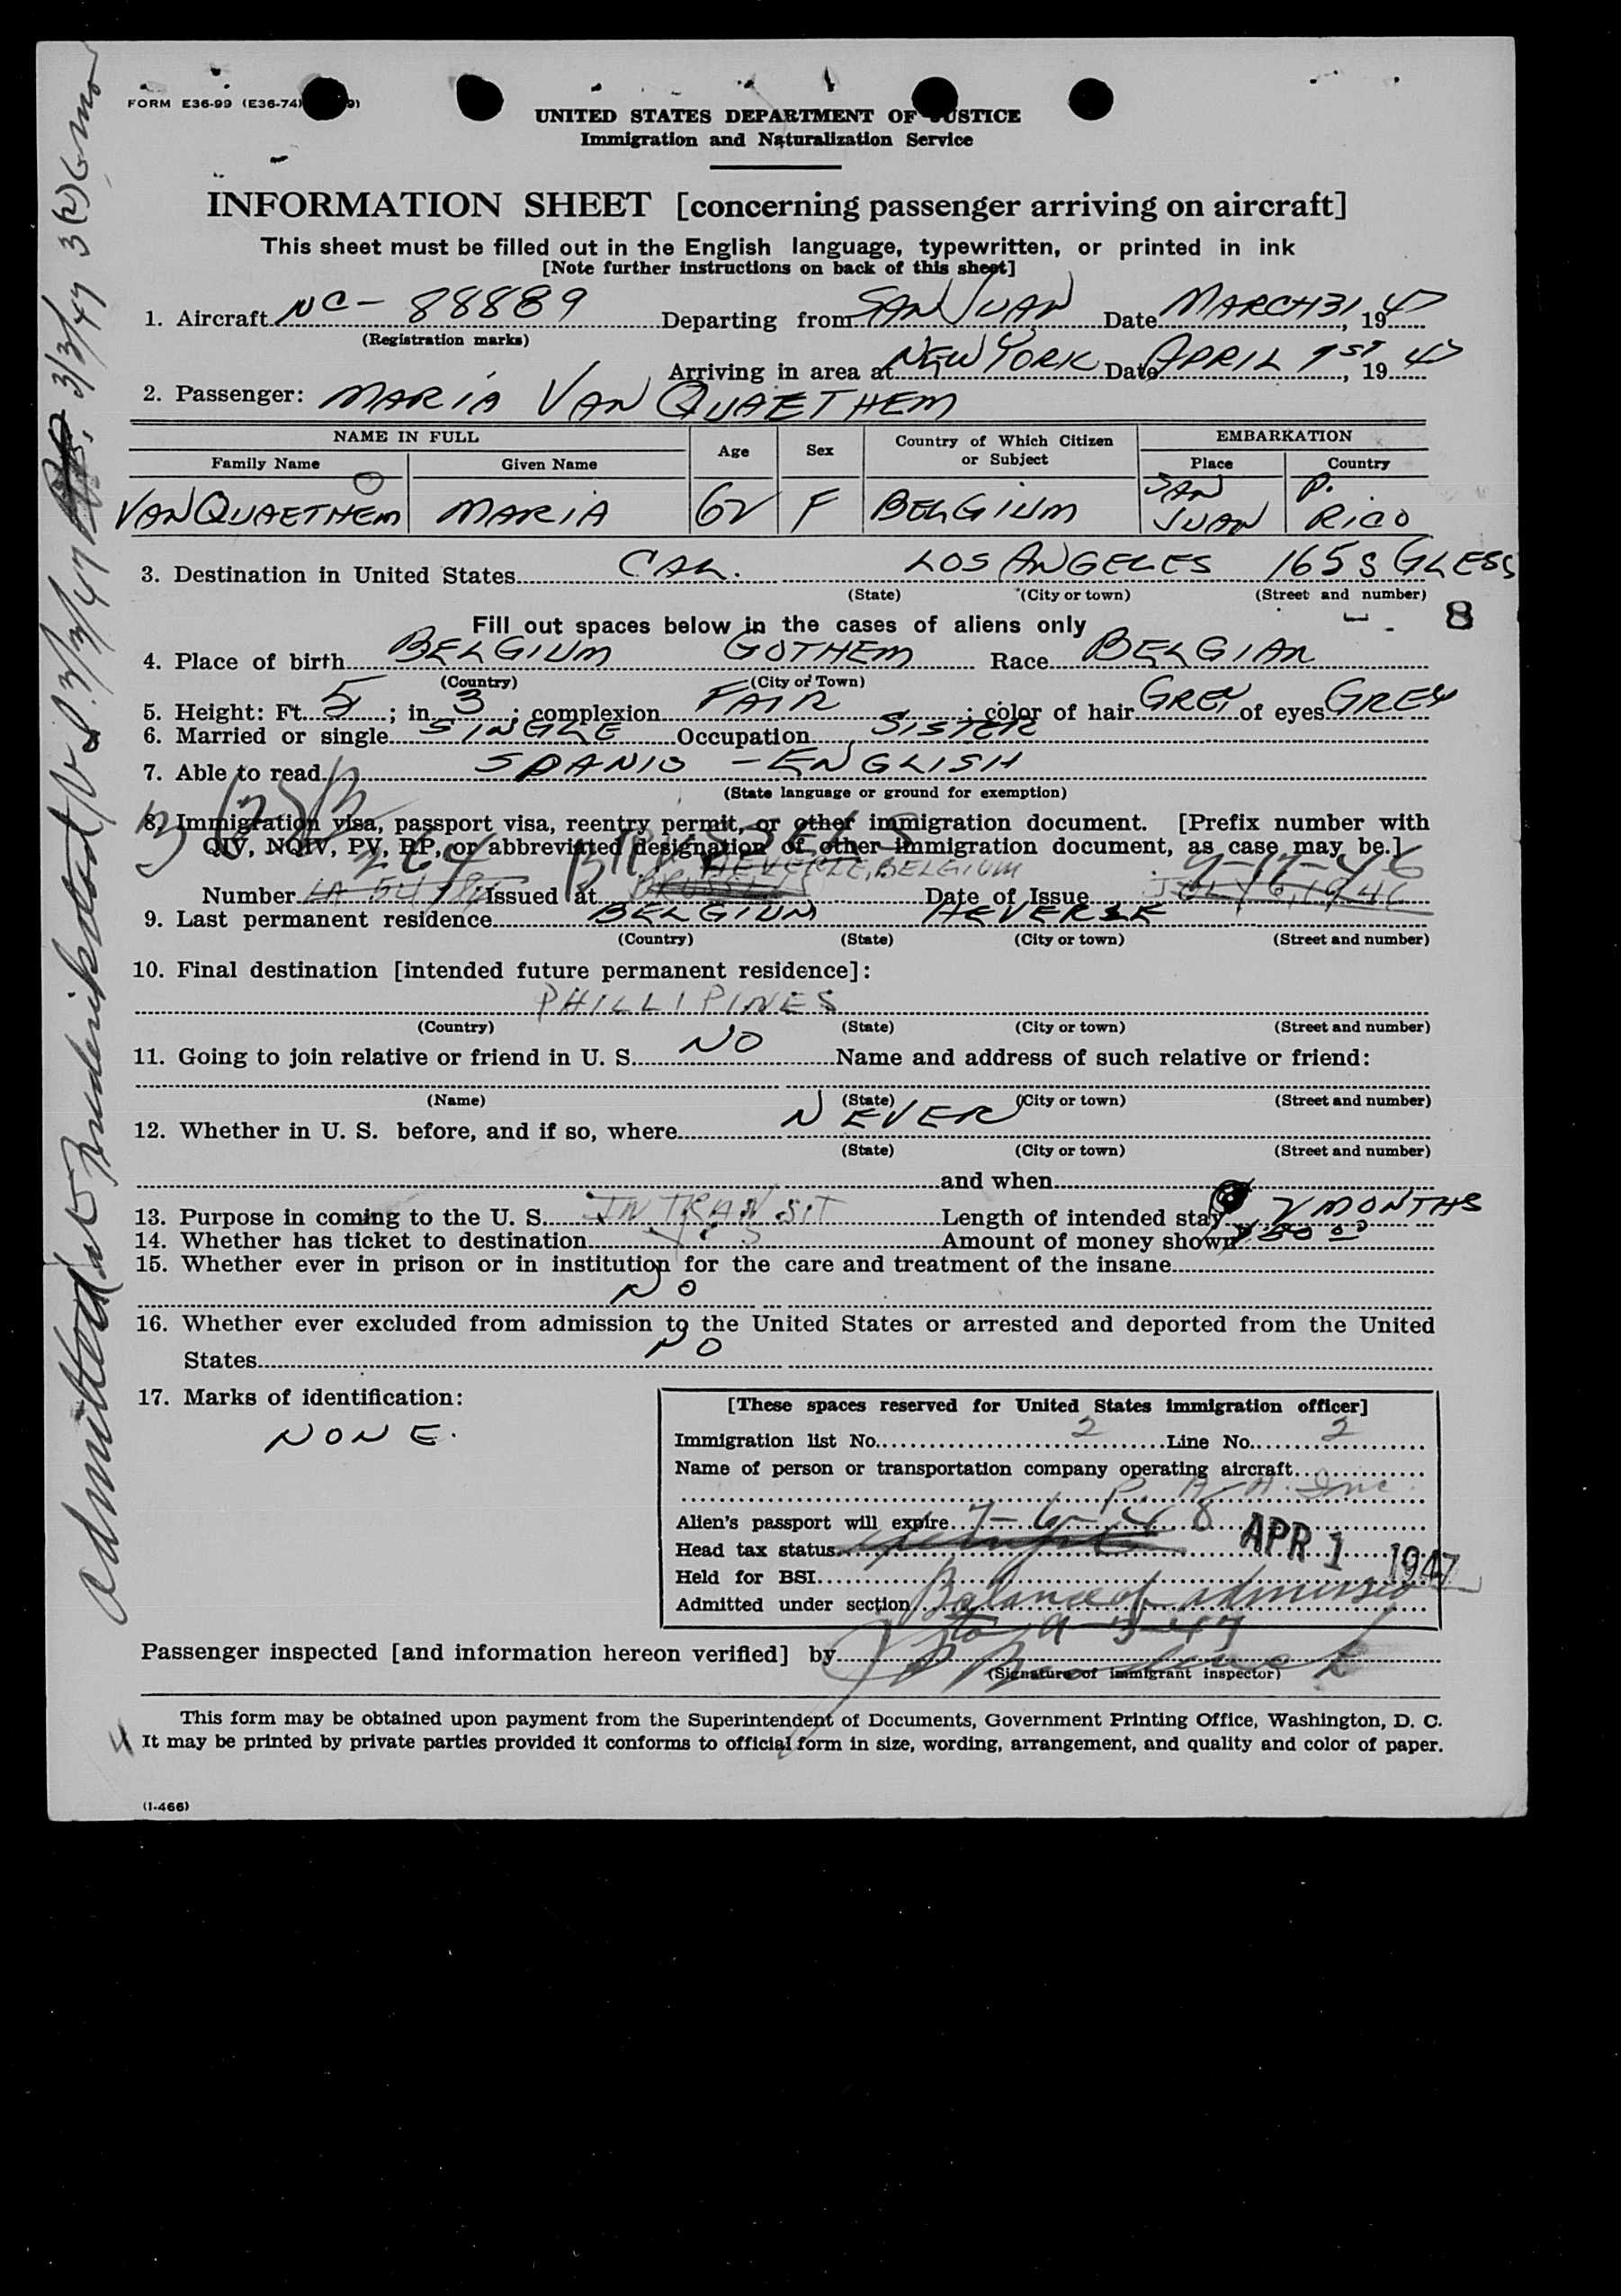 FORM E36-99 (E36-74)
UNITED STATES DEPARTMENT OF JUSTICE
Immigration and Naturalization Service
INFORMATION SHEET [concerning passenger arriving on aircraft]
This sheet must be filled out in the English language, typewritten, or printed in ink
[Note further instructions on back of this sheet]
1. Aircraft NC-88889 Departing from SAN JUAN Date MARCH 31, 1947
(Registration marks)
Arriving in area at NEW YORK Date APRIL 1ST, 1947
2. Passenger: MARIA VAN QUAETHEM
NAME IN FULL Age Sex Country of Which Citizen or Subject EMBARKATION
Family Name Given Name Place Country
VAN QUAETHEM MARIA 62 F BELGIUM SAN JUAN P. RICO
3. Destination in United States CAL. LOS ANGELES 165 S GLESS
(State) (City or town) (Street and number)
8
Fill out spaces below in the cases of aliens only
4. Place of birth BELGIUM GOTHEM Race BELGIAN
(Country) (City or Town)
5. Height: Ft. 5; in. 3; complexion FAIR; color of hair GREY of eyes GREY
6. Married or single SINGLE Occupation SISTER
7. Able to read SPANIS - ENGLISH
(State language or ground for exemption)
8. Immigration visa, passport visa, reentry permit, or other immigration document. [Prefix number with
QIV, NQIV, PV, RP, or abbreviated designation of other immigration document, as case may be.]
264 BRUSSELS 7-17-46
HEVERLE, BELGIUM
Number Issued at BRUSSELS Date of Issue JULY 6, 1946
9. Last permanent residence BELGIUM HEVERLE
(Country) (State) (City or town) (Street and number)
10. Final destination [intended future permanent residence]:
PHILLIPINES
(Country) (State) (City or town) (Street and number)
11. Going to join relative or friend in U. S. NO Name and address of such relative or friend:
(Name) (State) (City or town) (Street and number)
12. Whether in U. S. before, and if so, where NEVER
(State) (City or town) (Street and number)
and when
13. Purpose in coming to the U. S. IN TRANSIT Length of intended stay 2 MONTHS
14. Whether has ticket to destination YES Amount of money shown
15. Whether ever in prison or in institution for the care and treatment of the insane
NO
16. Whether ever excluded from admission to the United States or arrested and deported from the United
States NO
17. Marks of identification:
NONE.
[These spaces reserved for United States immigration officer]
Immigration list No. 2 Line No. 2
Name of person or transportation company operating aircraft
P. A. A. Inc
Alien's passport will expire 7-6-48
Head tax status
APR 1 1947
Held for BSI
Admitted under section Balance of admission
to 9-3-47
Passenger inspected [and information hereon verified] by
(Signature of immigrant inspector)
This form may be obtained upon payment from the Superintendent of Documents, Government Printing Office, Washington, D. C.
It may be printed by private parties provided it conforms to official form in size, wording, arrangement, and quality and color of paper.
(I-466)
Admitted at Frederiksted, V.I. 3/3/47 3/3/47 3(2) 6 mos